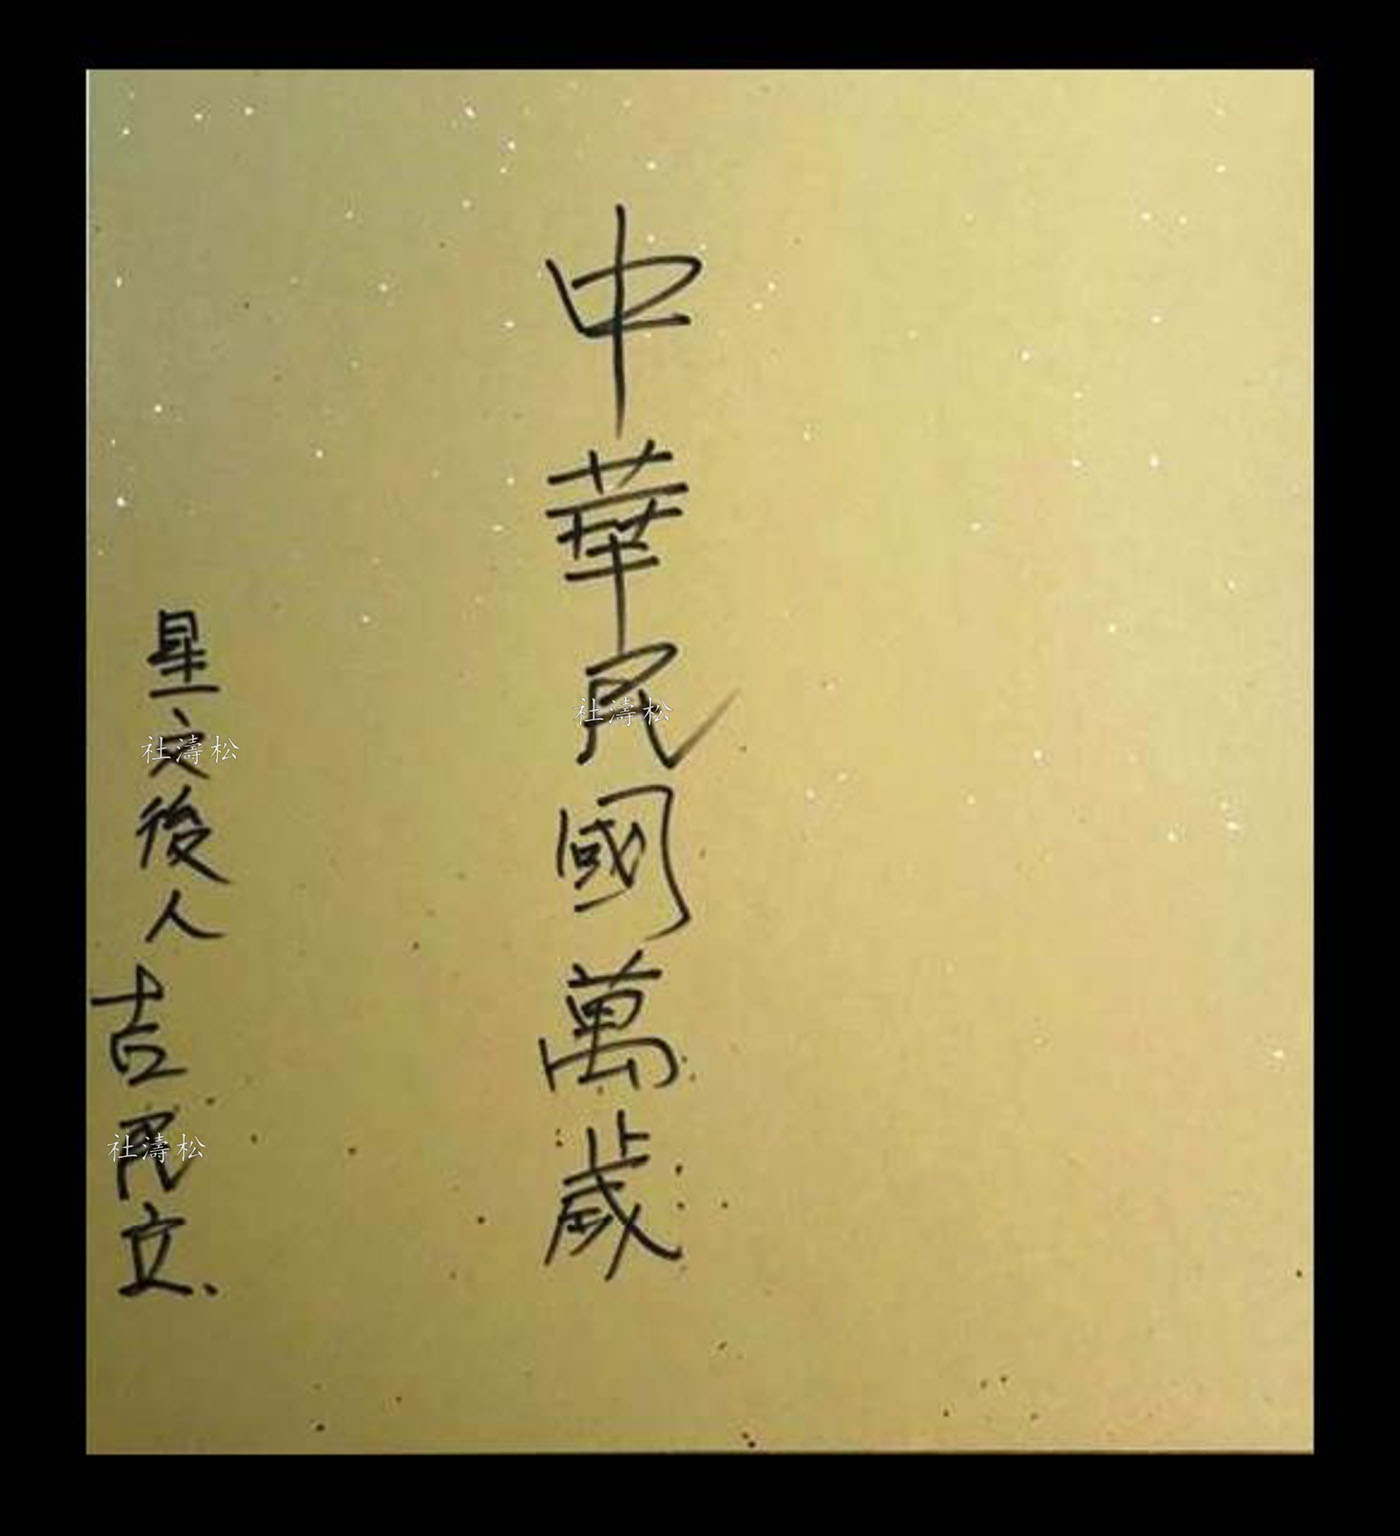 中華民國萬歲
星之後人
吉民立
社濤松
社濤松
社濤松